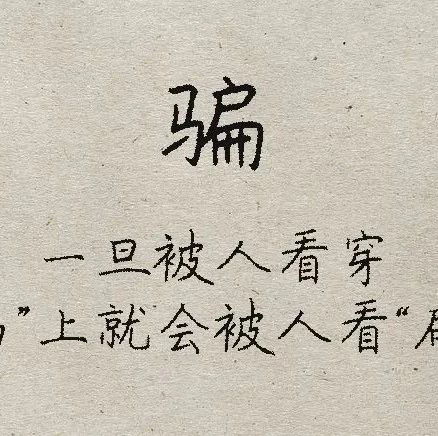 骗
一旦被人看穿
”上就会被人看“